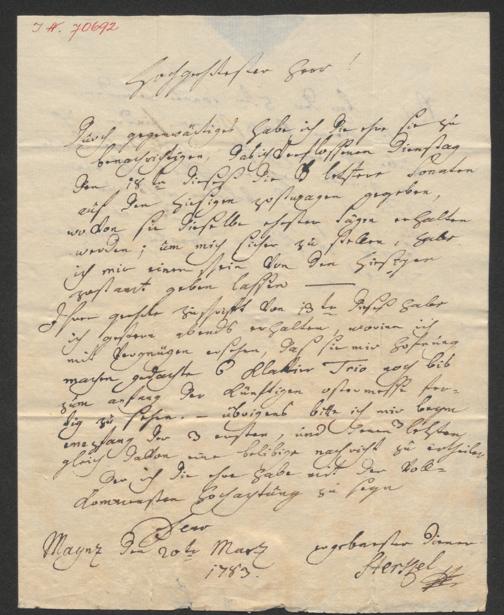 I.N. 70692
Hochgeehrtester Herr!
Durch gegenwärtiges habe ich die ehre sie zu
benachrichtigen, daß ich verflossenen Dienstag
den 18ten dieses die 3 letztere Sonaten
auf den hiesigen postwagen gegeben,
wovon sie dieselbe ehester Tägen erhalten
werden; um mich sicher zu stellen, habe
ich mir einen schein von dem hiesigen
postamt geben lassen —
Ihre geehrte zuschrifft von 13ten dieses habe
ich gestern abends erhalten, worinn ich
mit Vergnügen ersehen, daß sie mir hofnung
machen gedachte 6 Klavier Trio noch bis
zum anfang der künftigen ostermesse fer-
tig zu sehen. – übrigens bitte ich mir beym
empfang der 3 ersten und denen 3 letzten
gleich davon eine belibige nachricht zu ertheilen
der ich die ehre habe mit der voll-
kommensten hochachtung zu seyn
Dero
Maynz den 20ten Martz ergebenster diener
1783. Sterkel